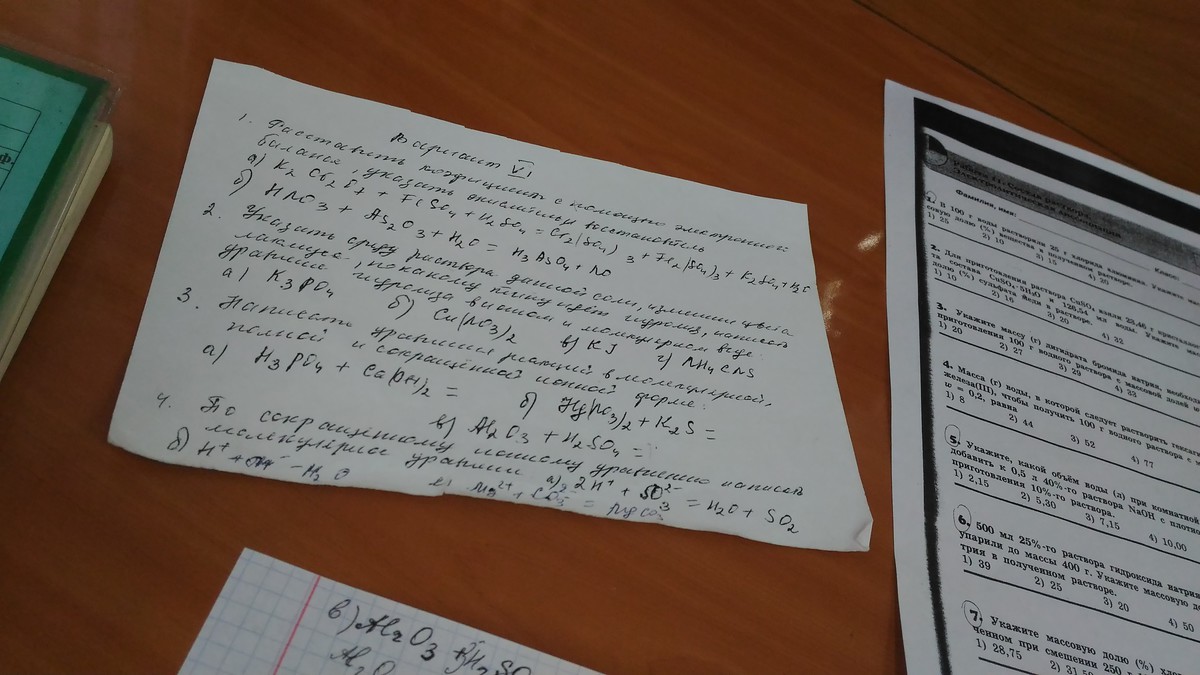 Вариант VI
1. Расставить коэфициенты с помощью электронного
баланса, указать окислитель, восстановитель
а) K2 Cr2 O7 + FeSO4 + H2SO4 = Cr2(SO4)3 + Fe2(SO4)3 + K2SO4 + H2O
б) HNO3 + As2O3 + H2O = H3AsO4 + NO
2. Указать среду раствора данной соли, цвета
по какому идёт гидролиз, написать
гидролиза в ионном и молекулярном виде:
а) K3PO4 б) Cu(NO3)2 в) KJ г) NH4CNS
3. Написать реакций в молекулярной,
полной и сокращённой ионной форме:
а) H3PO4 + Ca(OH)2 = б) Hg(NO3)2 + K2S =
в) Al2O3 + H2SO4 =
4. По сокращённому ионному уравнению написать
а) 2H+ + SO3 2- = H2O + SO2
б) H+ + OH- = H2O в) Mg2+ + CO3 2- = MgCO3
в) Al2O3 + 3H2SO
Al2O
Электролитическая диссоциация
Фамилия, имя:
Класс:
1. В 100 г воды растворили 25 г хлорида
совую долю (%) вещества в полученном растворе.
1) 25 2) 10 3) 15 4) 20
2. Для приготовления раствора CuSO4 взяли 23,46 г
та состава CuSO4·5H2O и 126,54 мл воды. Укажите
долю (%) сульфата меди в растворе.
1) 10 2) 16 3) 20 4) 32
3. Укажите массу (г) дигидрата бромида натрия,
приготовления 100 г водного раствора с массовой долей
1) 20 2) 27 3) 29 4) 33
4. Масса (г) воды, в которой следует растворить
железа(III), чтобы получить 100 г водного раствора с
w = 0,2, равна
1) 8 2) 44 3) 52 4) 77
5. Укажите, какой объём воды (л) при комнатной
добавить к 0,5 л 40%-го раствора NaOH с
приготовления 10%-го раствора.
1) 2,15 2) 5,30 3) 7,15 4) 10,00
6. 500 мл 25%-го раствора гидроксида
упарили до массы 400 г. Укажите массовую
трия в полученном растворе.
1) 39 2) 25 3) 20 4) 50
7. Укажите массовую долю (%)
ченном при смешении 250
1) 28,75 2) 31